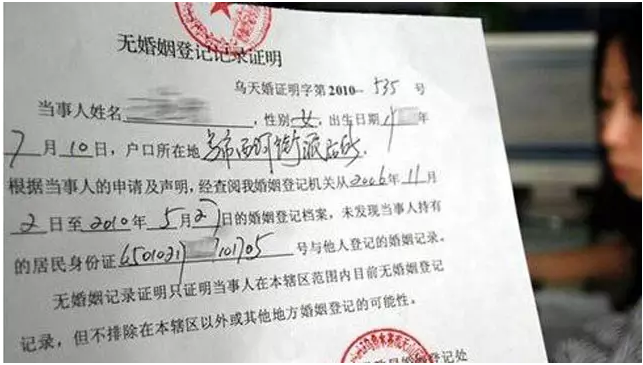 无婚姻登记记录证明
乌天婚证明字第2010-535号
当事人姓名，性别女，出生日期年
7月10日，户口所在地乌市西河街派出所.
根据当事人的申请及声明，经查阅我婚姻登记机关从2006年11月
2日至2010年5月27日的婚姻登记档案，未发现当事人持有
的居民身份证号与他人登记的婚姻记录。
无婚姻记录证明只证明当事人在本辖区范围内目前无婚姻登记
记录，但不排除在本辖区以外或其他地方婚姻登记的可能性。
婚姻登记处